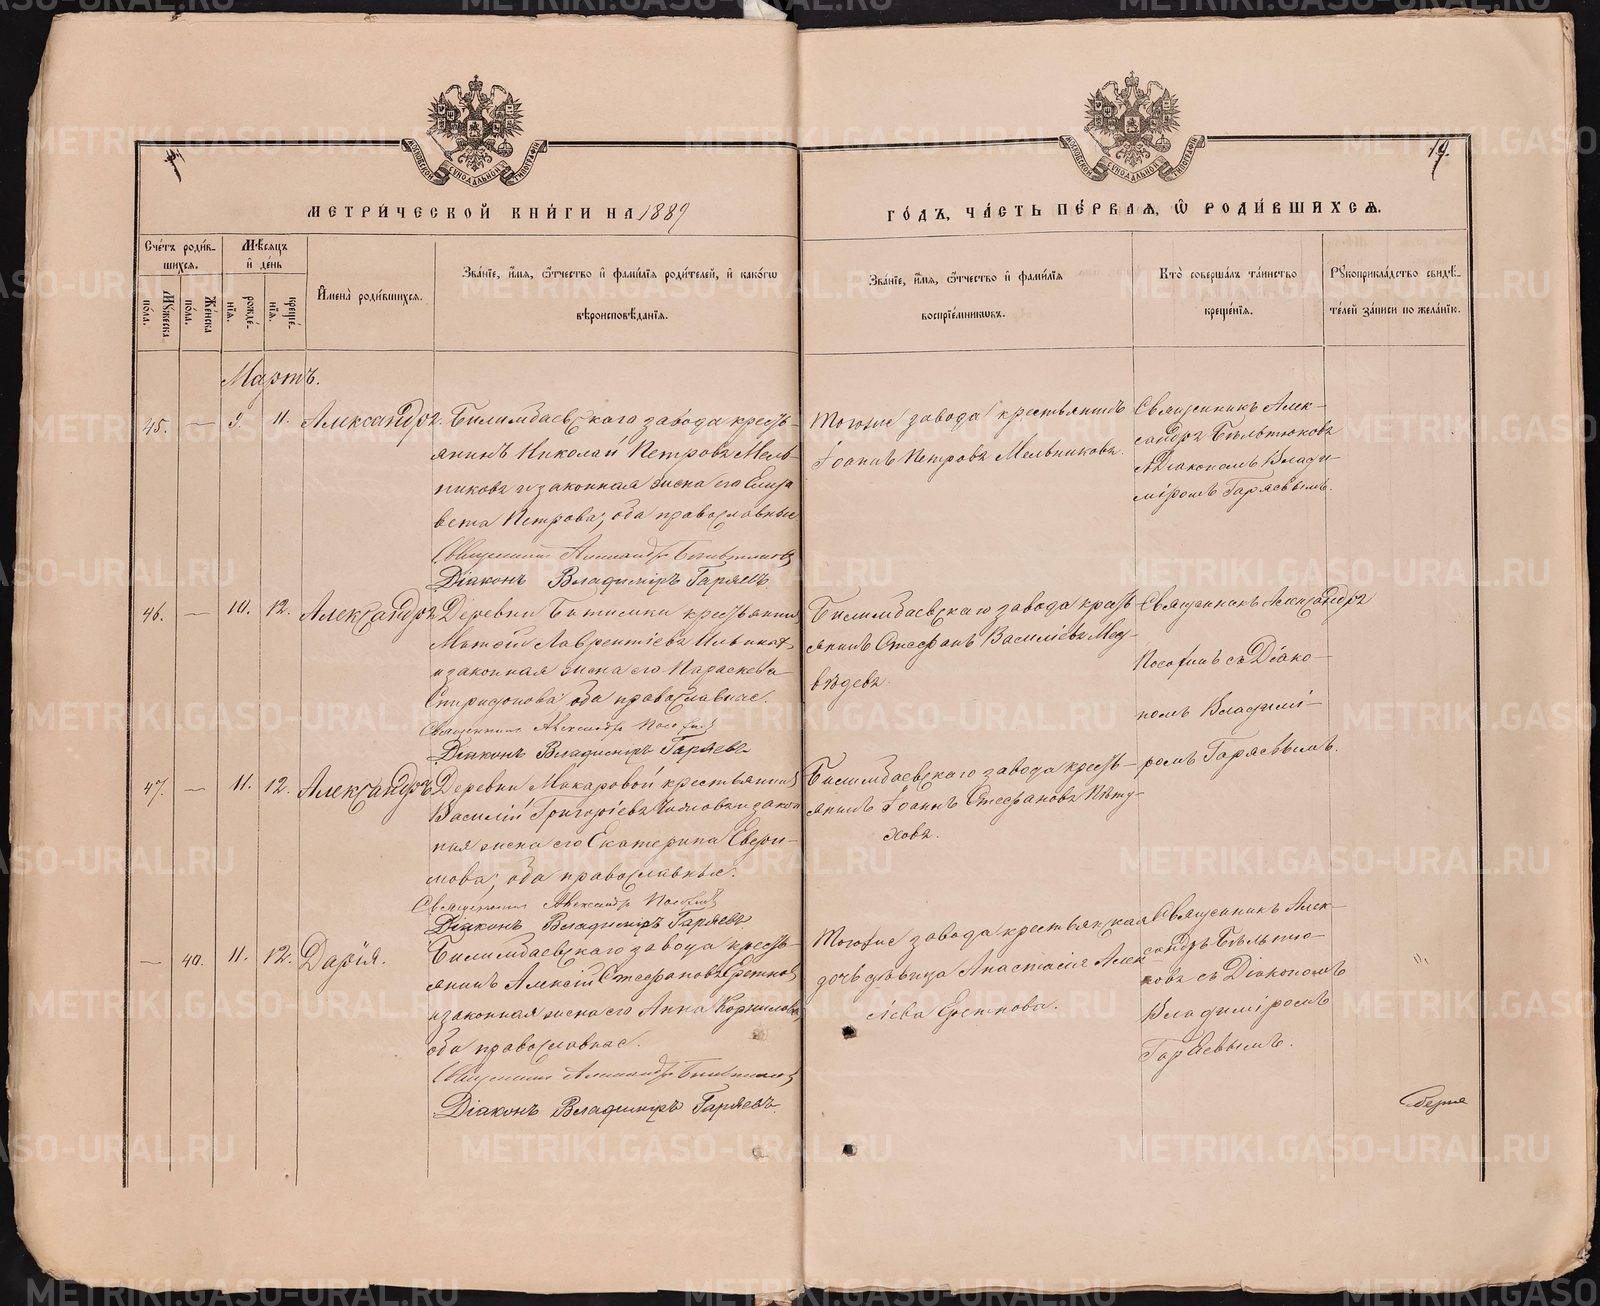 МЕТРИ́ЧЕСКОЙ КНИ́ГИ НА 1889
ГО́ДЪ, ЧА́СТЬ ПЕ́РВАЯ, Ѿ РОДИ́ВШИХСЯ.
19.
МОСКОВСКОЙ СУНОДАЛЬНОЙ ТИПОГРАФІИ
МОСКОВСКОЙ СУНОДАЛЬНОЙ ТИПОГРАФІИ
Сче́тъ роди́в-
шихся.
Му́жеска по́ла.
Же́нска по́ла.
Мѣ́сяцъ
и҆ де́нь
рожде́-
нія.
креще́-
нія.
И҆мена̀ роди́вшихся.
Зва́ніе, и҆́мя, ѻ҆́тчество и҆ фами́лія роди́телей, и҆ како́гѡ
вѣроисповѣ́данія.
Зва́ніе, и҆́мя, ѻ҆́тчество и҆ фами́лія
воспріе́мникѡвъ.
Кто̀ соверша́лъ та́инство
креще́нія.
Рꙋкоприкла́дство свидѣ́-
телей за́писи по жела́нію.
Мартъ.
45. — 9. 11. Александръ.
Билимбаевскаго завода кресть-
янинъ Николай Петровъ Мель-
никовъ и законная жена его Елиза
вета Петрова; оба православные
Священникъ Александръ Бѣльтюковъ
Діаконъ Владимиръ Гаряевъ.
Тогоже завода крестьянинъ
Іоаннъ Петровъ Мельниковъ.
Священникъ Алек-
сандръ Бѣльтюковъ
съ Діакономъ Влади-
міромъ Гаряевымъ.
46. — 10. 12. Александръ
Деревни Битимки крестьянинъ
Матѳей Лаврентіевъ
и законная жена его Параскева
Спиридонова оба православнае.
Священникъ Александръ
Діаконъ Владимиръ Гаряевъ
Билимбаевскаго завода кресть
янинъ Стефанъ Василіевъ Мед-
вѣдевъ.
Священникъ Александръ
съ Діако-
номъ Владимі-
ромъ Гаряевымъ.
47. — 11. 12. Александръ
Деревни Макаровой крестьянинъ
Василій Григоріевъ и закон
ная жена его Екатерина
мова; оба православные.
Священникъ Александръ
Діаконъ Владимиръ Гаряевъ
Билимбаевскаго завода кресть-
янинъ Іоаннъ Стефановъ Пѣту-
ховъ.
— 40. 11. 12. Дарія.
Билимбаевскаго завода кресть-
янинъ Алексій Стефановъ Еретновъ
и законная жена его Анна Корнилова,
оба православнае.
Священникъ Александръ Бѣльтюковъ
Діаконъ Владимиръ Гаряевъ.
Тогоже завода крестьянская
дочь дѣвица Анастасія Алек
сіева Еретнова.
Священникъ Алек-
сандръ Бѣльтю-
ковъ съ Діакономъ
Владиміромъ
Гаряевымъ.
METRIKI.GASO-URAL.RU